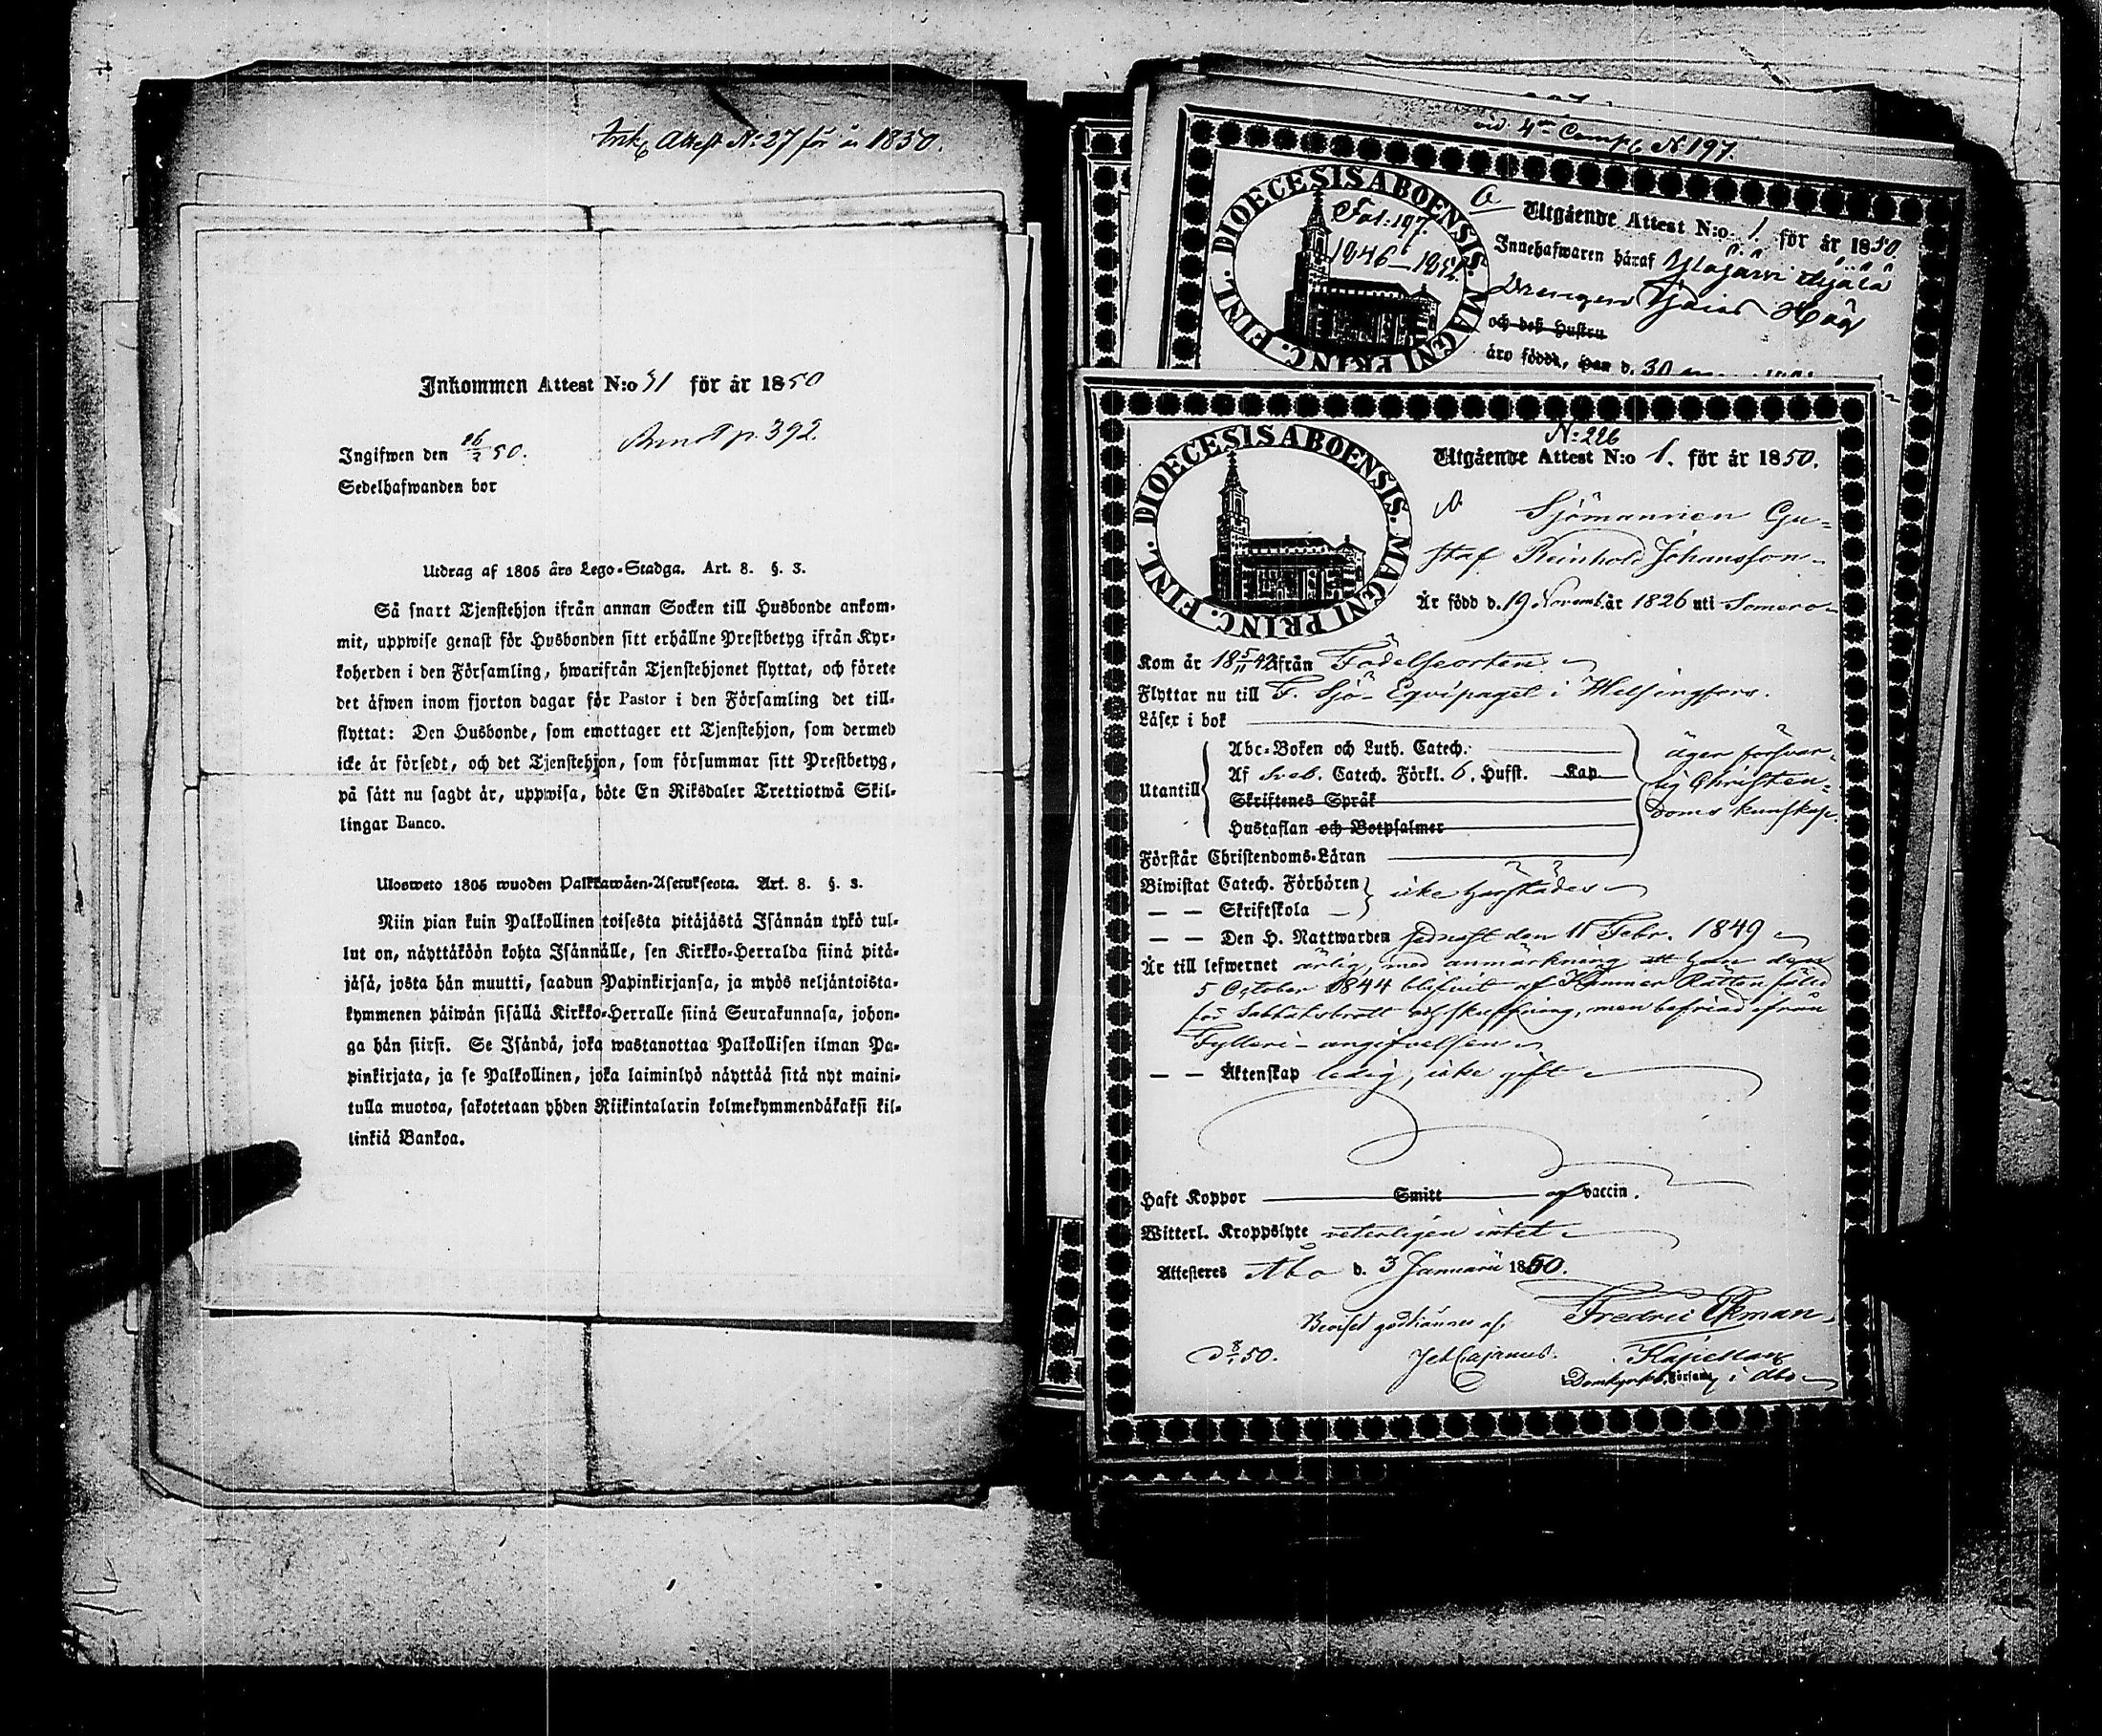 Attest N:27 för år 1850.
Inkommen Attest N:o 31 för år 1850
Ingifwen den 26/2 50.
p. 392.
Sedelhafwanden bor
Utdrag af 1805 års Lego-Stadga. Art. 8. §. 3.
Så snart Tjenstehjon ifrån annan Socken till Husbonde ankom-
mit, uppwise genast för Husbonden sitt erhållne Prestbetyg ifrån Kyr-
koherden i den Församling, hwarifrån Tjenstehjonet flyttat, och förete
det äfwen inom fjorton dagar för Pastor i den Församling det till-
flyttat: Den Husbonde, som emottager ett Tjenstehjon, som dermed
icke är försedt, och det Tjenstehjon, som försummar sitt Prestbetyg,
på sätt nu sagdt är, uppwisa, böte En Riksdaler Trettiotwå Skil-
lingar Banco.
Ulosweto 1805 wuoden Palkkawäen-Asetuksesta. Art. 8. §. 3.
Niin pian kuin Palkollinen toisesta pitäjästä Isännän tykö tul-
lut on, näyttäköön kohta Isännälle, sen Kirkko-Herralda siinä pitä-
jäsä, josta hän muutti, saadun Papinkirjansa, ja myös neljäntoista-
kymmenen päiwän sisällä Kirkko-Herralle siinä Seurakunnasa, johon-
ga hän siirsi. Se Isändä, joka wastanottaa Palkollisen ilman Pa-
pinkirjata, ja se Palkollinen, joka laiminlyö näyttää sitä nyt maini-
tulla muotoa, sakotetaan yhden Riikintalarin kolmekymmendäkaksi kil-
linkiä Bankoa.
vid 4de Comp. N 197.
DIOECESIS ABOENSIS. MAGNI PRINC. FINL.
Fol: 197.
1846–1852.
Utgående Attest N:o 1. för år 1850.
Innehafwaren häraf
Drengen
och deß Hustru
äro födde, man d. 30
N:226
DIOECESIS ABOENSIS. MAGNI PRINC. FINL.
Utgående Attest N:o 1. för år 1850.
Sjömannen Gu-
staf Reinhold Johansson
Är född d. 19 Novemb. år 1826 uti Somero
Kom år 18 5/11 42 ifrån Födelseorten
Flyttar nu till F. Sjö-Eqvipaget i Helsingfors.
Läser i bok
Utantill
Abc-Boken och Luth. Catech.
Af Sveb. Catech. Förkl. 6. Hufst. Kap.
Skriftenes Språk
Hustaflan och Botpsalmer
äger försvar-
lig Christen-
doms kunskap.
Förstår Christendoms-Läran
Biwistat Catech. Förhören
— — Skriftskola
icke härstädes
— — Den H. Nattwarden sednast den 11 Febr. 1849
Är till lefwernet ärlig, med anmärkning att han den
5 October 1844 blifvit af Kämner Rätten fäld
för Sabbatsbrott och skuffning, men befriad ifrån
Fylleri-angifvelsen
— — Äktenskap ledig, icke gift
Haft Koppor Smitt af vaccin.
Witterl. Kroppslyte veterligen intet
Attesteres Åbo d. 3 Januarii 1850.
Beviset godkännes af:
Fredric Ekman
D 8/1 50.
Joh Cajanus.
Kapellan
Domkyrko. Församl. i Åbo